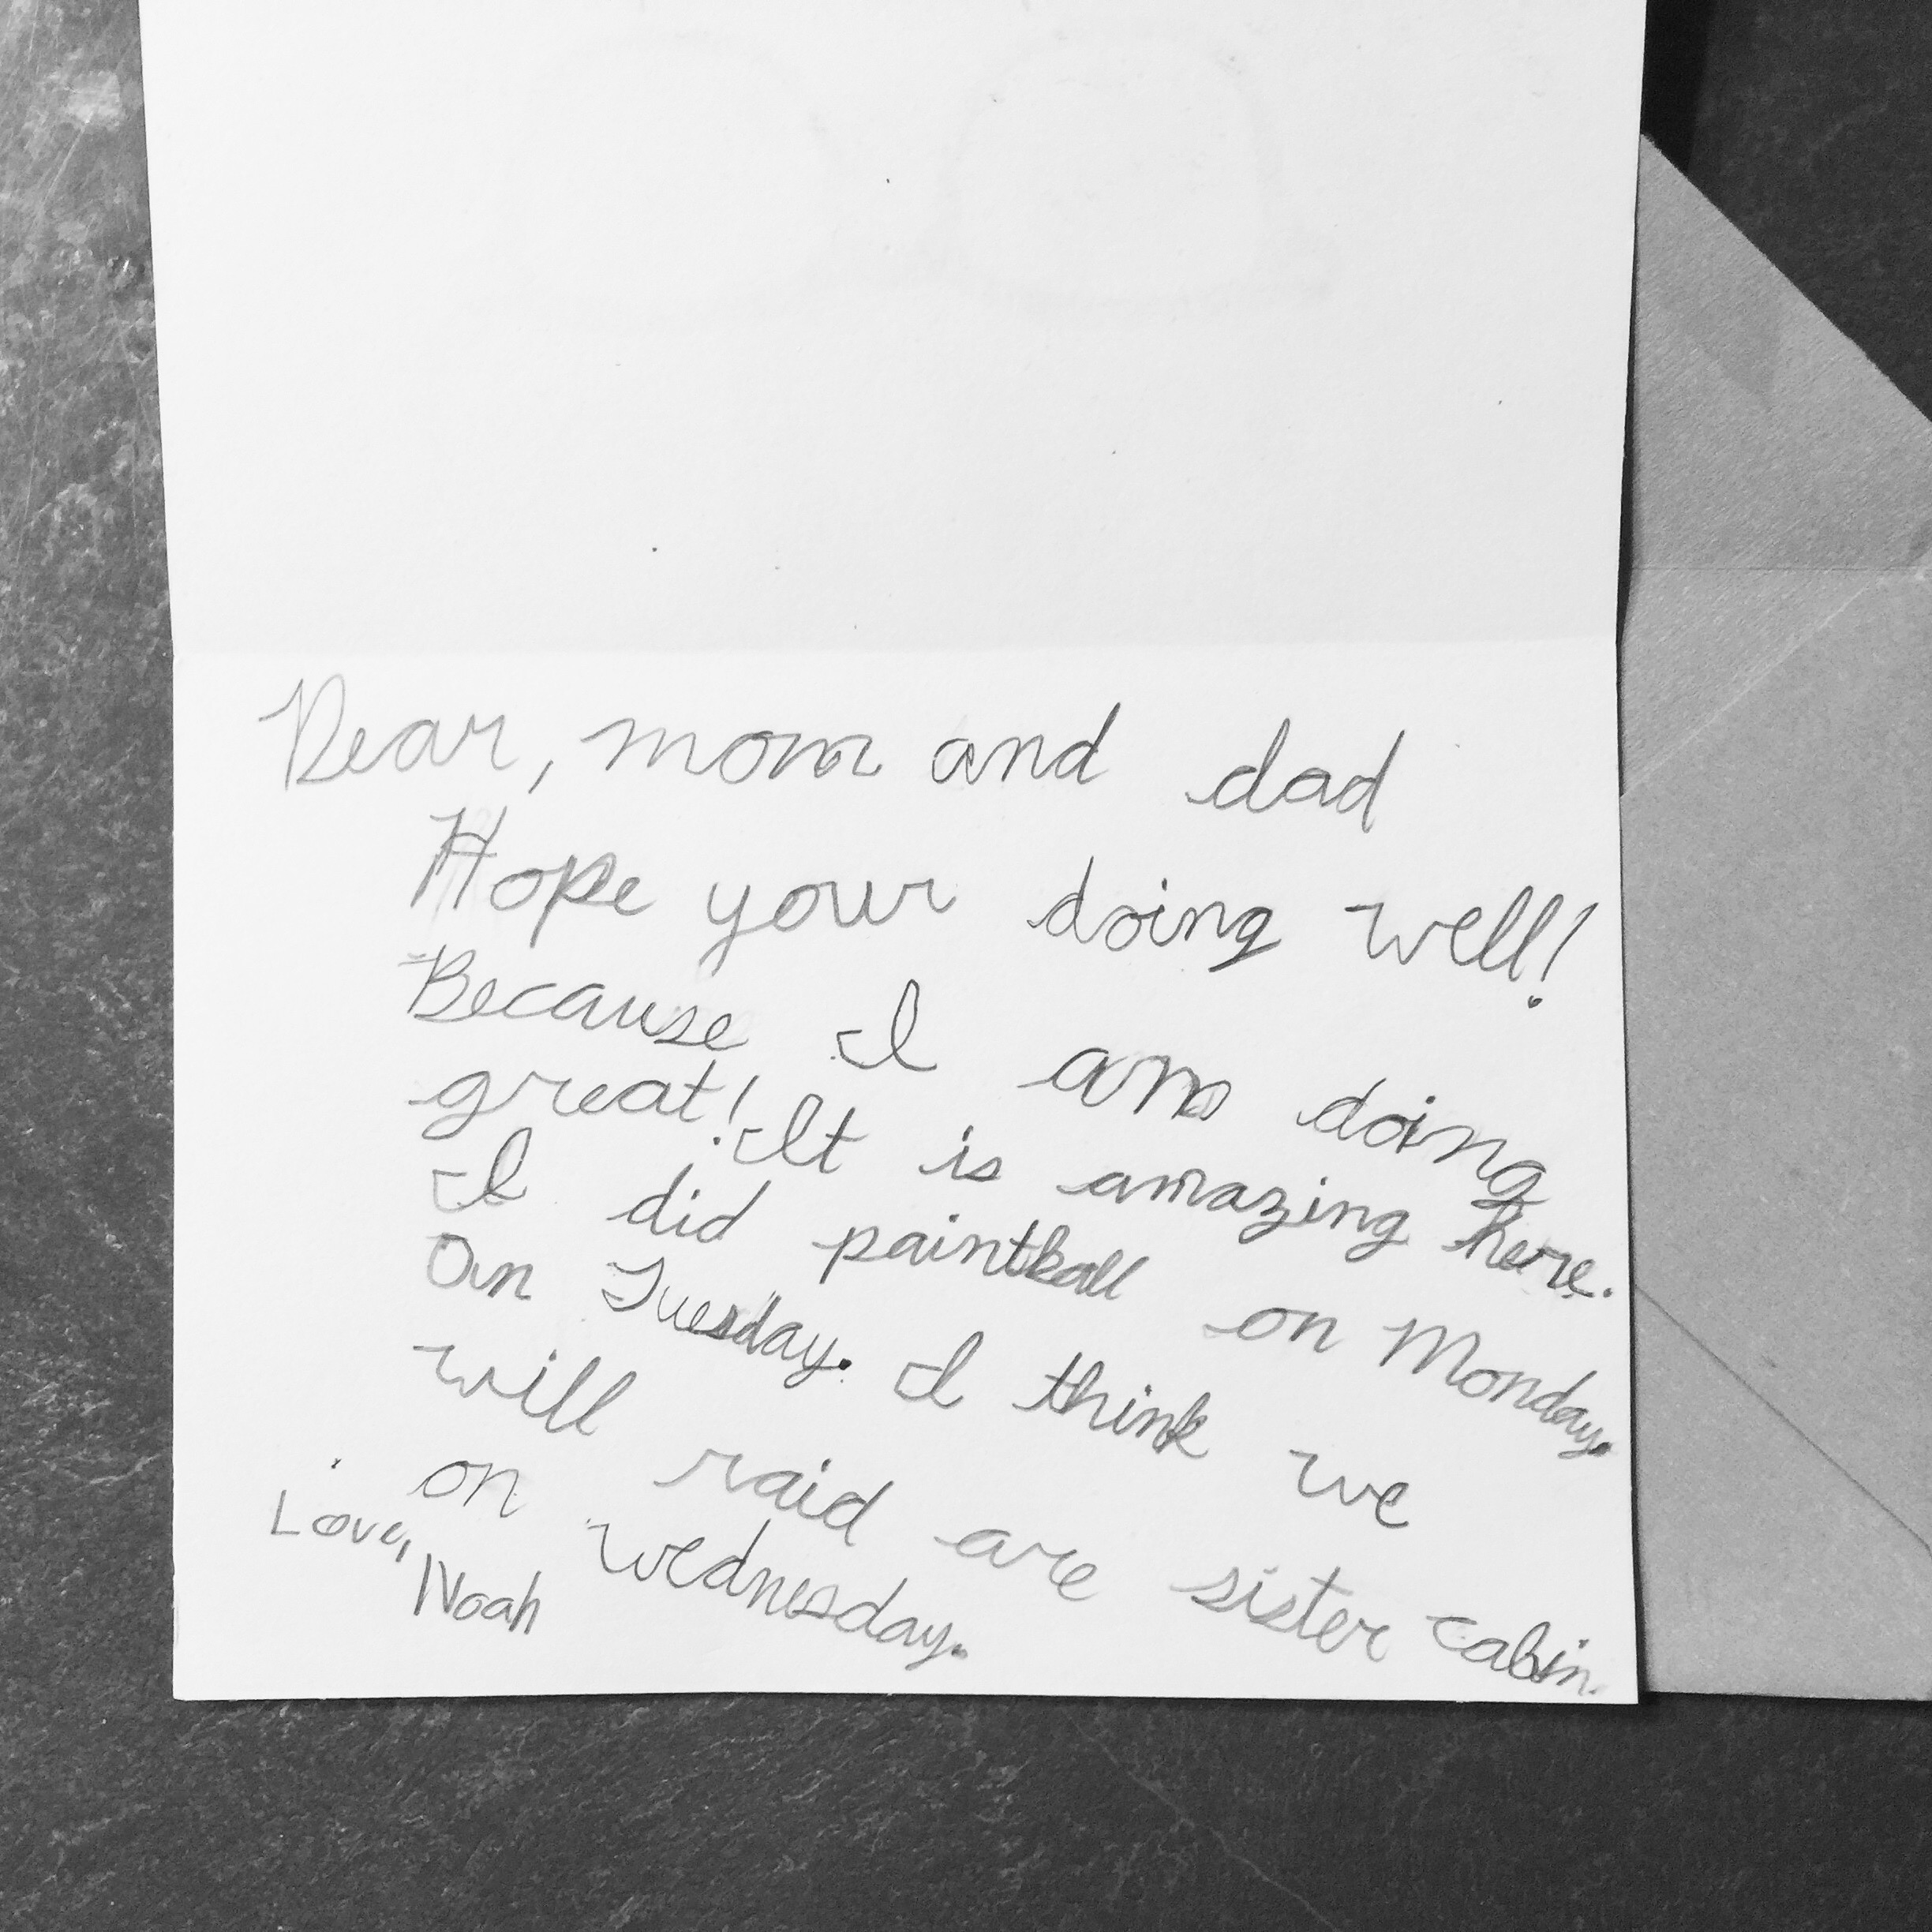 Dear, mom and dad
Hope your doing well!
Because I am doing
great! It is amazing here.
I did paintball on Monday.
On Tuesday. I think we
will raid are sister cabin.
on Wednesday.
Love,
Noah